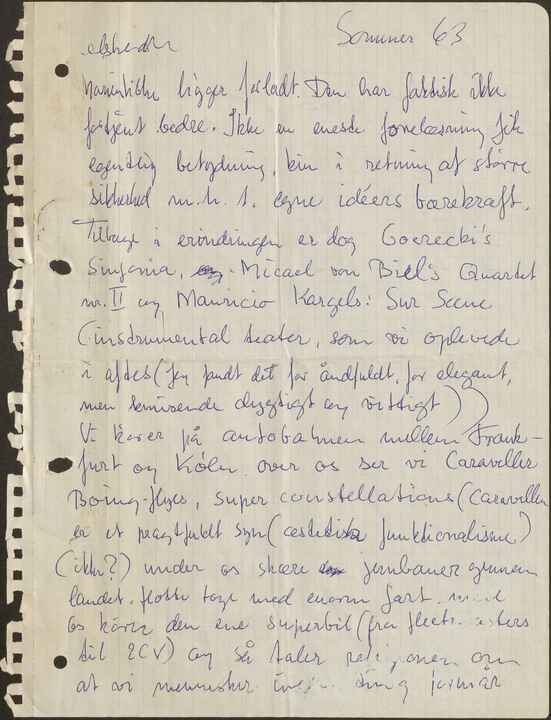 Sommer 63
elskede
ligger forladt. Den har faktisk ikke
fortjent bedre. Ikke en eneste forelæsning fik
egentlig betydning, kun i retning af større
sikkerhed m.h.t. egne idéers bærekraft.
Tilbage i erindringen er dog Goerecki's
Sinfonia, Micael von Biel's Quartet
nr. II og Mauricio Kargels: Sur Scene
(instrumental teater, som vi oplevede
i aftes (jeg fandt det for åndfuldt, for elegant,
men dygtigt og vittigt))
Vi kører på autobahnen mellem Frank-
furt og Köln over os ser vi Caraveller
Boing-flyes, super constellations (Caravellen
er et pragtfuldt syn (æstetisk funktionalisme)
(ikke?) under os skære jernbaner gennem
landet. flotte toge med enorm fart.
os kører den ene superbil (fra
til 2CV) og så taler om
at vi mennesker